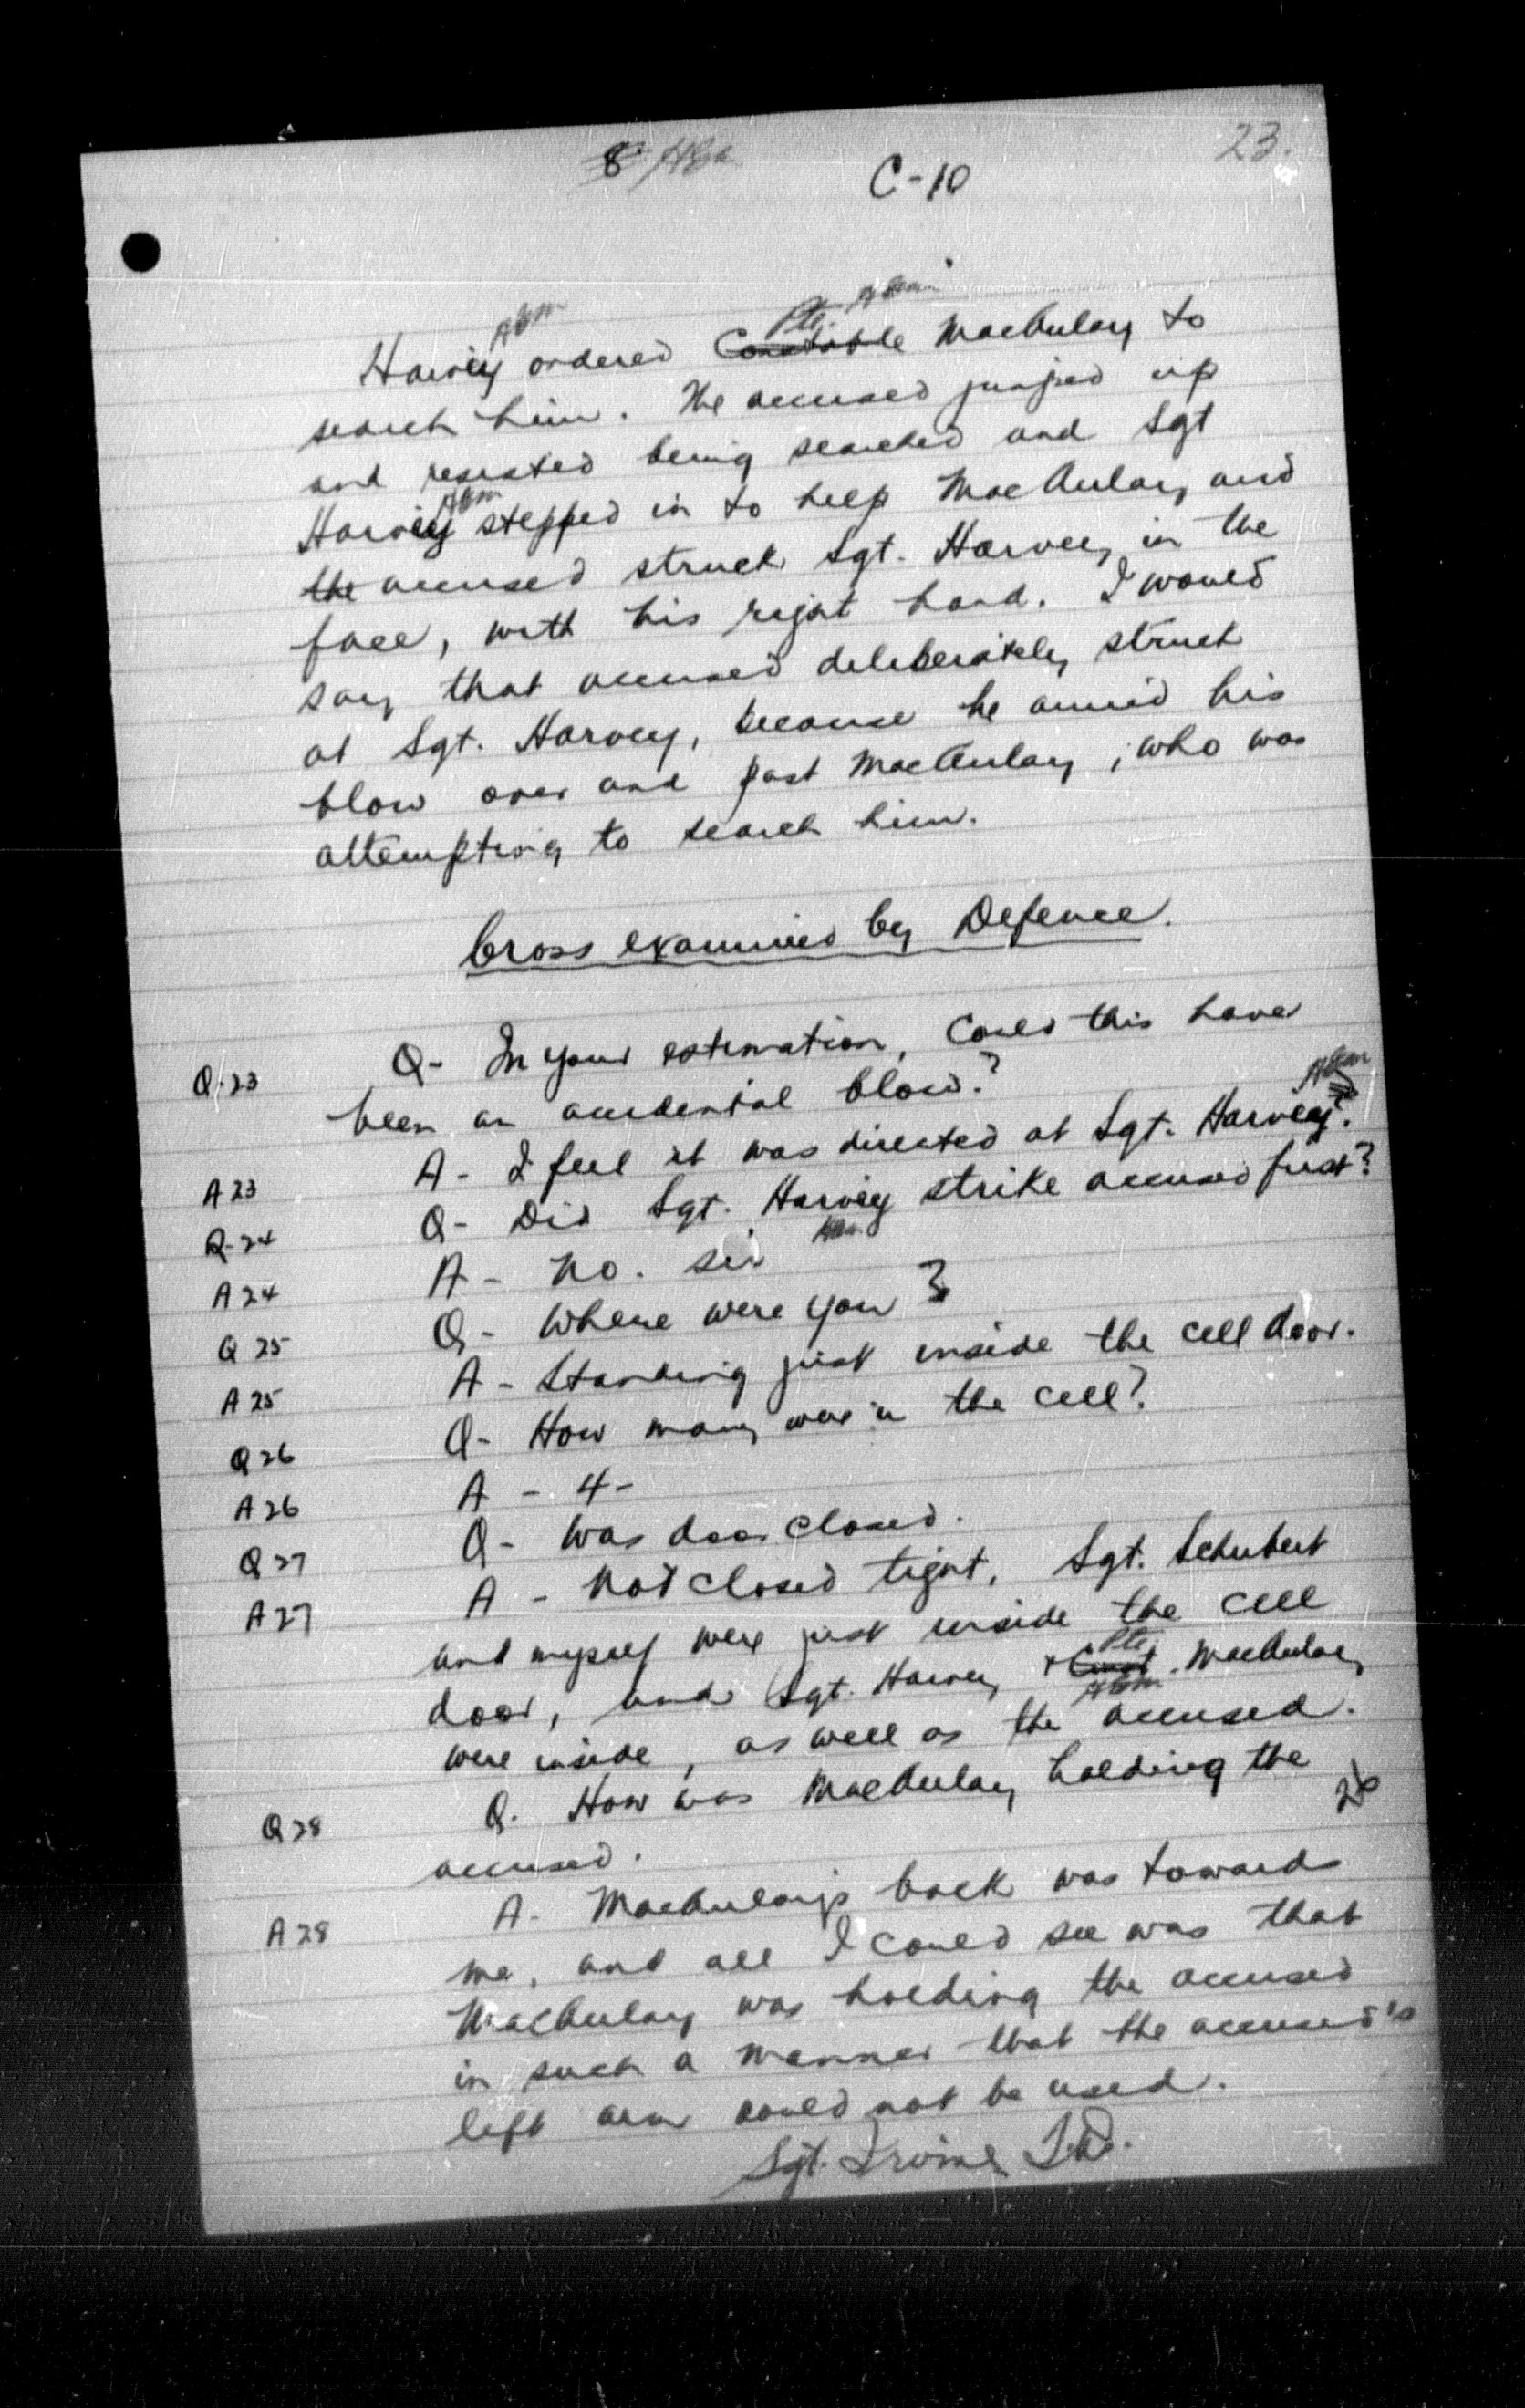 23.
8
C-10
Harvey ordered Constable Pte. MacAulay to
search him. The accused jumped up
and resisted being searched and Sgt
Harvey stepped in to help MacAulay and
the accused struck Sgt. Harvey in the
face, with his right hand. I would
say that accused deliberately struck
at Sgt. Harvey, because he aimed his
blow over and past MacAulay, who was
attempting to search him.
Cross examined by Defence.
Q-23 Q- In your estimation, Could this have
been an accidental blow?
A 23 A- I feel it was directed at Sgt. Harvey.
Q-24 Q- Did Sgt. Harvey strike accused first?
A 24 A- No. sir
Q 25 Q- Where were you?
A 25 A- Standing just inside the cell door.
Q 26 Q- How many were in the cell?
A 26 A - 4-
Q 27 Q- Was door closed.
A 27 A - Not closed tight, Sgt. Schubert
and myself were just inside the cell
door, and Sgt. Harvey + Const. Pte. MacAulay
were inside, as well as the accused.
Q 28 Q. How was MacAulay holding the
accused.
26
A 28 A- MacAulay's back was towards
me, and all I could see was that
MacAulay was holding the accused
in such a manner that the accused's
left arm could not be used.
Sgt. Irvine